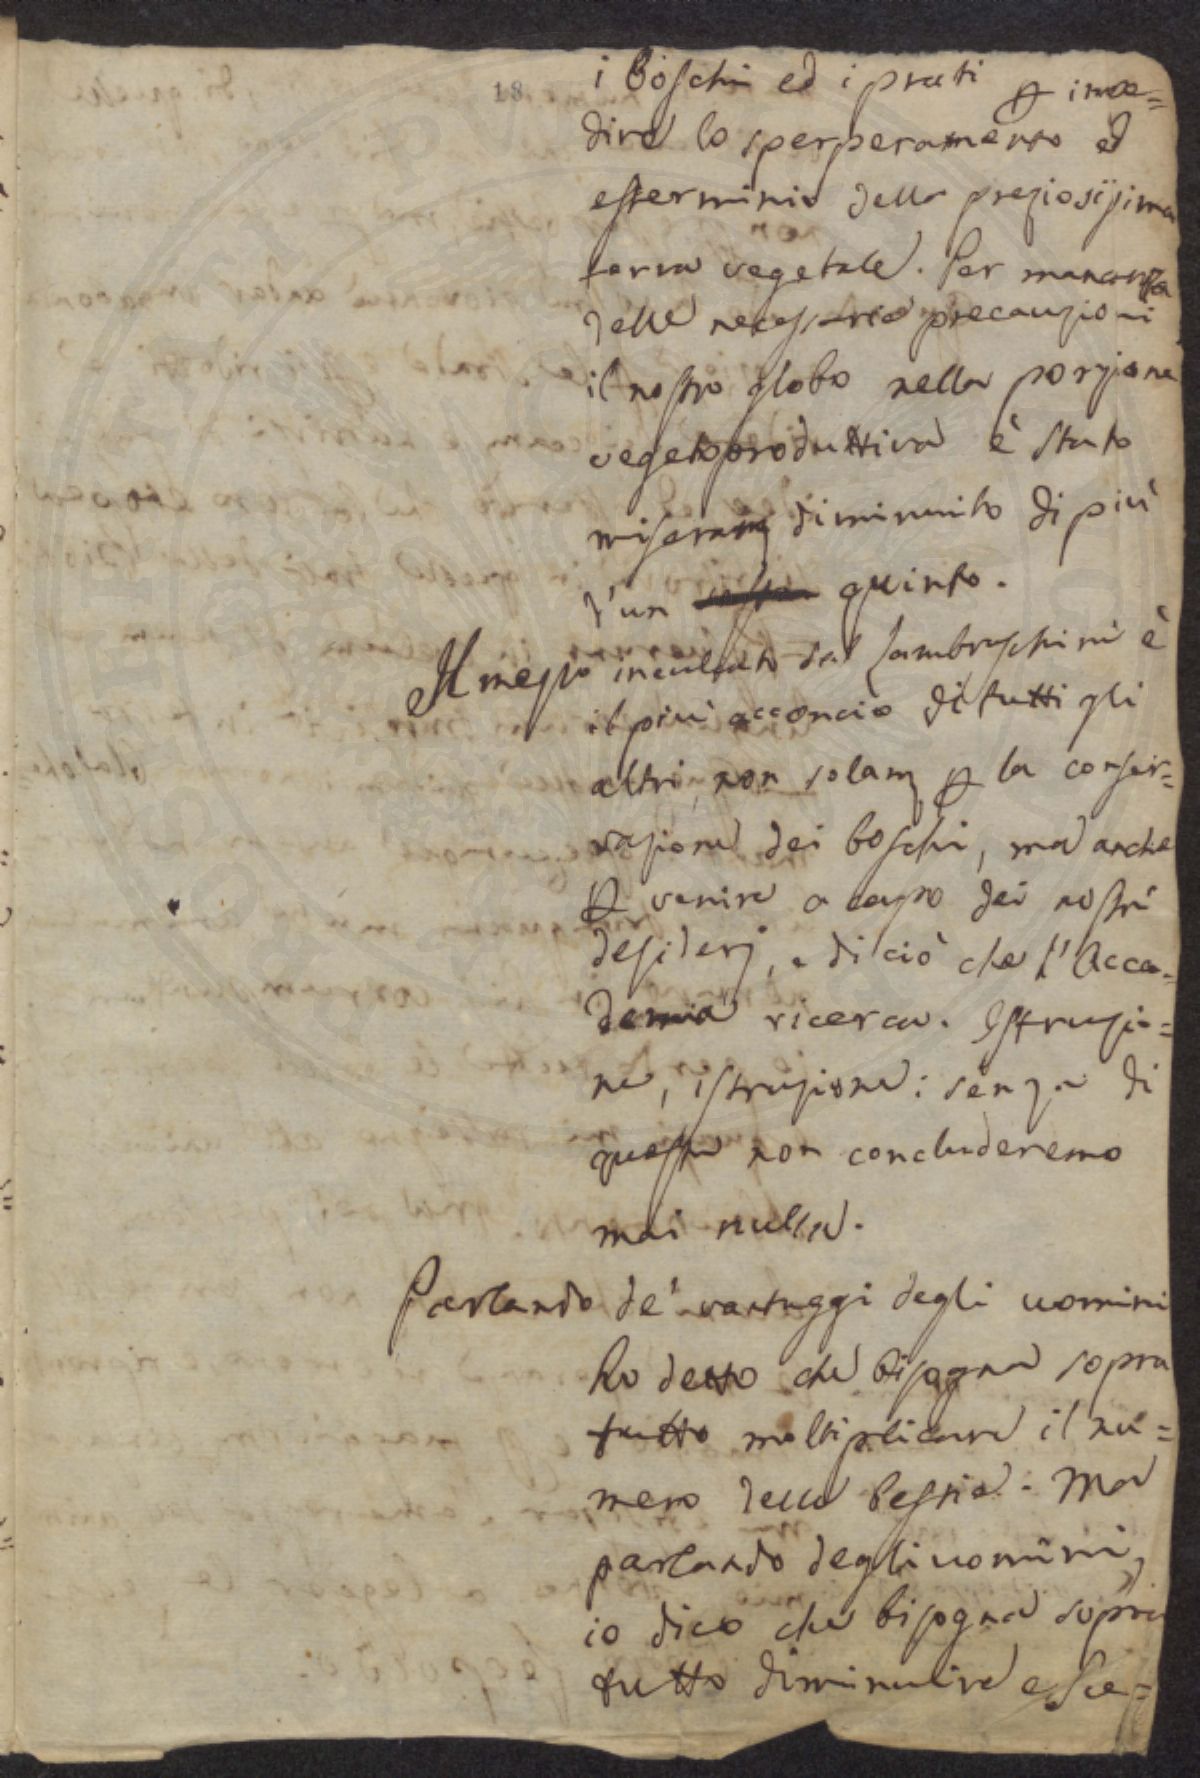 18
i boschi ed i prati ꝑ impe=
dire lo sperperamento ed
esterminio della preziosissima
terra vegetale. Per mancanza
delle necessarie precauzioni
il nostro globo nella porzione
vegetoproduttiva è stato
miseram diminuito di più
d'un quinto.
Il mezzo inculcato dal Lambruschini è
il più acconcio di tutti gli
altri, non solam ꝑ la conser=
vazione dei boschi, ma anche
ꝑ venire a capo dei nostri
desiderj, e di ciò che l'Acca=
demia ricerca. Istruzio=
ne, istruzione: senza di
questa non concluderemo
mai nulla.
Parlando de' vantaggi degli uomini
ho detto che bisogna sopra
tutto moltiplicare il nu=
mero delle bestie. Ma
parlando degli uomini,
io dico che bisogna sopra
tutto diminuire e sce=